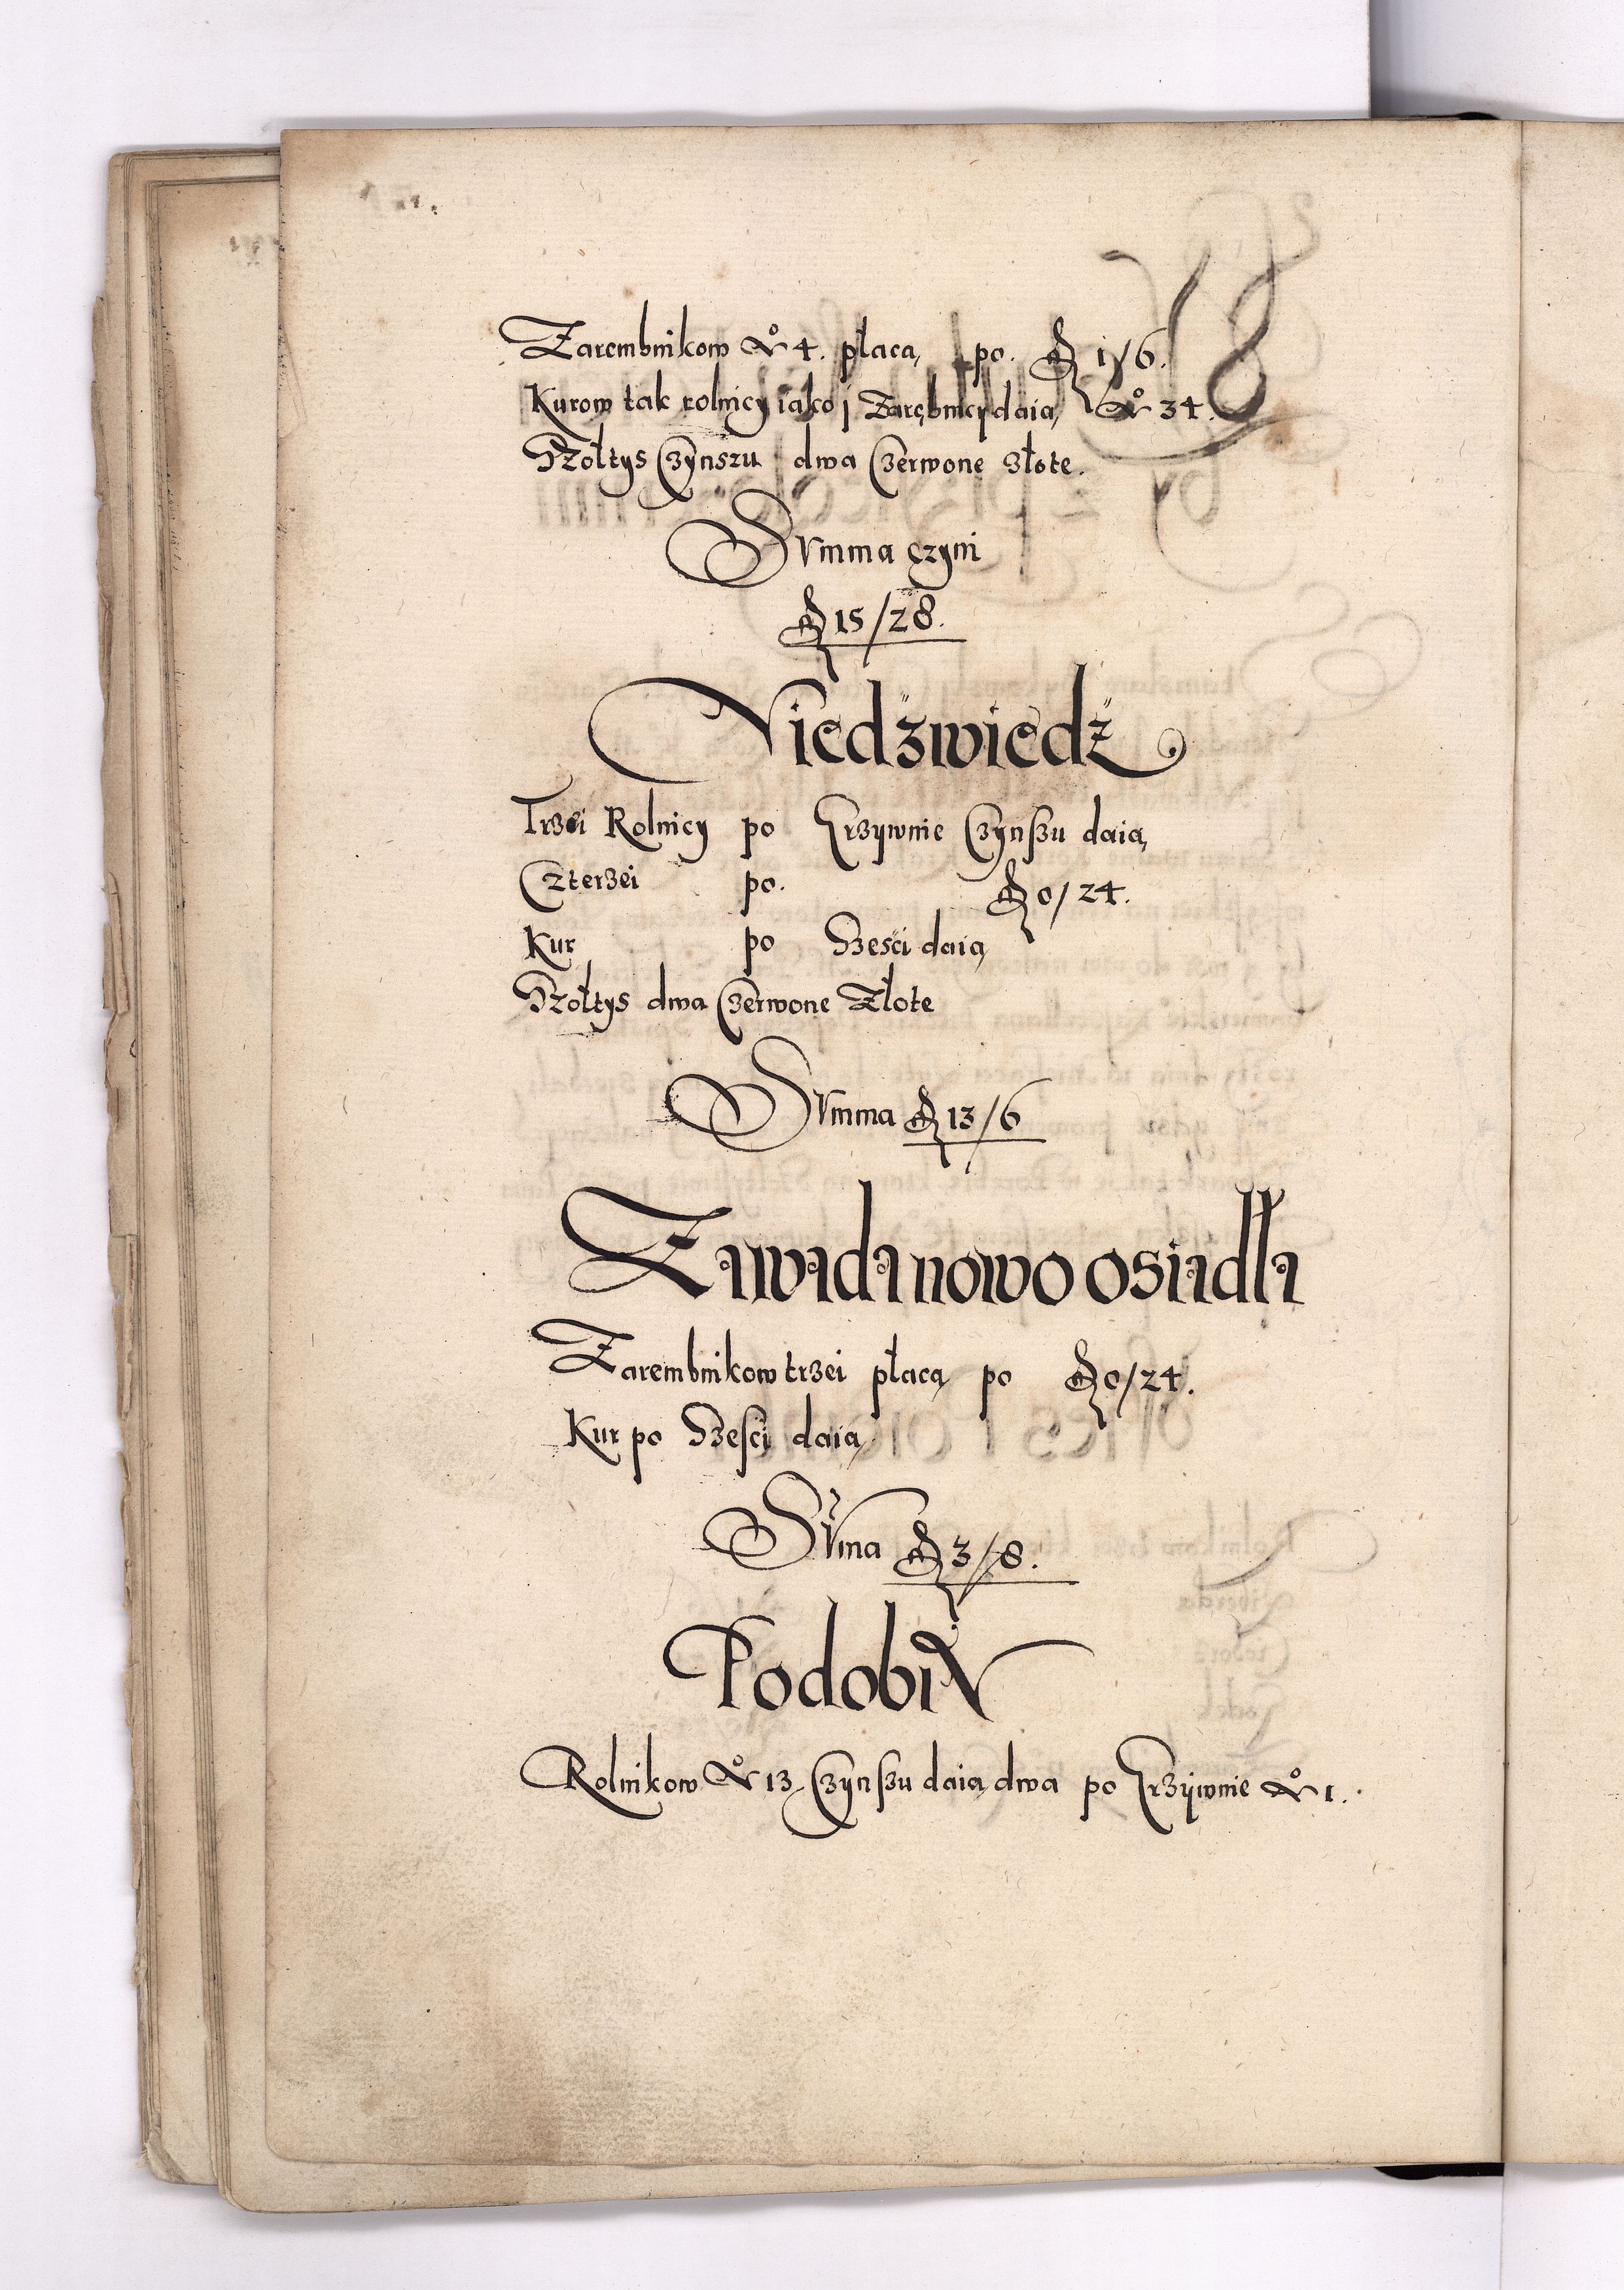 Zarembnikow No 4. płacą po. fl 1/6.
Kurow tak rolnicy iako j Zarębnicy daią No 34.
Szoltys Czynszu dwa Czerwone złote.
Svmma czyni
fl 15/28.
Niedzwiedz
Trzei Rolnicy po Grzywnie Czynszu daią
Czterzei po. fl 0/24.
Kur po Szesci daią
Szołtys dwa Czerwone Złote
Svmma fl 13/6
Zawada nowo osiadła
Zarembnikow trzei płacą po fl 0/24.
Kur po Szesci daią
Svma fl 3/8.
Podobin
Rolnikow No 13 Czynszu daią dwa po Grzywnie No 1.